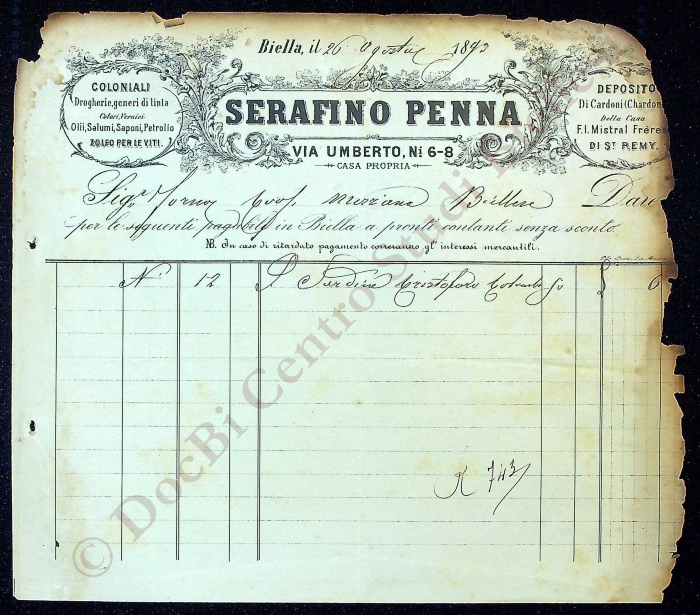 Biella, il 26 Agosto 1893
COLONIALI
Drogherie, generi di tinta
Colori, Vernici
Olii, Salumi, Saponi, Petrolio
ZOLFO PER LE VITI.
SERAFINO PENNA
VIA UMBERTO, Nⁱ 6-8
CASA PROPRIA
DEPOSITO
Di Cardoni (Chardon
Della Casa
F.lli Mistral Frères
DI Sᵗ REMY.
Sigʳ Forno Coop. Biellese Dare
per le seguenti pagabili in Biella a pronti contanti senza sconto.
NB. In caso di ritardato pagamento correranno gl' interessi mercantili.
N° 12 Sardine Cristoforo Colombo 50 6
743
© DocBi Centro Studi